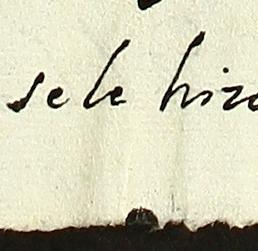 sele hizo